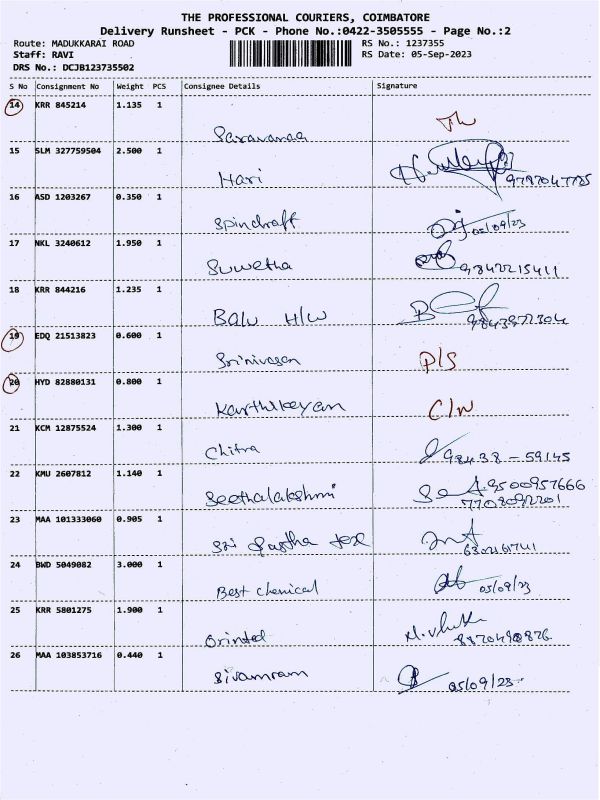 THE PROFESSIONAL COURIERS, COIMBATORE
Delivery Runsheet - PCK - Phone No.:0422-3505555 - Page No.:2
Route: MADUKKARAI ROAD RS No.: 1237355
Staff: RAVI RS Date: 05-Sep-2023
DRS No.: DCJB123735502
S No Consignment No Weight PCS Consignee Details Signature
14 KRR 845214 1.135 1
Saravanaa
15 SLM 327759504 2.500 1
Hari 9797047725
16 ASD 1203267 0.350 1
Spincraft 05/09/23
17 NKL 3240612 1.950 1
Suwetha 9842215411
18 KRR 844216 1.235 1
Balu H/W
19 EDQ 21513823 0.600 1
Srinivasan D/S
20 HYD 82880131 0.800 1
Karthikeyan C/N
21 KCM 12875524 1.300 1
Chitra 98438-59145
22 KMU 2607812 1.140 1
9500957666
Seethalakshmi 7708092201
23 MAA 101333060 0.905 1
Sri Sastha tex
24 BWD 5049082 3.000 1
Best chemical 05/09/23
25 KRR 5801275 1.900 1
Orinted 8870490876
26 MAA 103853716 0.440 1
Sivamram 05/09/23